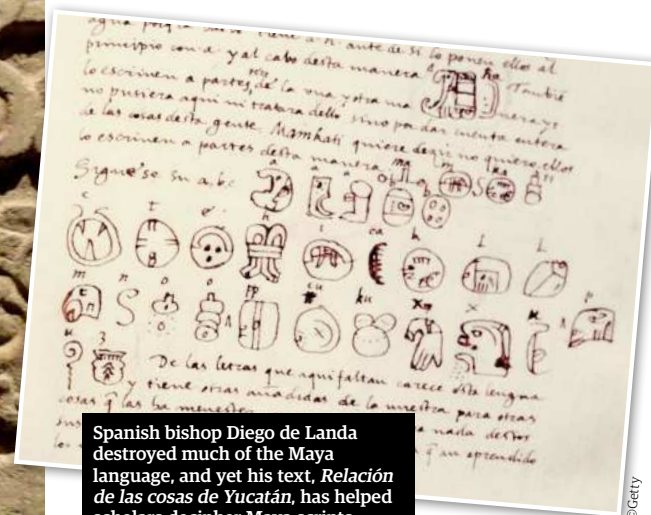 principio con a y al cabo desta manera Tambie
lo escriven a partes de la una y otra ma nera y
no pusiera aqui ni tratara dello sino por dar cuenta entera
de las cosas desta gente. Mamkati quiere dezir no quiero, ellos
lo escriven a partes desta manera ma i n ka ti
Siguese su a, b, c. a a a b b
c t e h i ca k L L
m n o o pp cu ku x x u p
u z De las letras que aqui faltan carece esta lengua
y tiene otras añadidas de la nuestra para otras
cosas q̃ las ha menester
nada destos
q̃ an aprendido
Spanish bishop Diego de Landa
destroyed much of the Maya
language, and yet his text, Relación
de las cosas de Yucatán, has helped
scholars decipher Maya scripts
©Getty